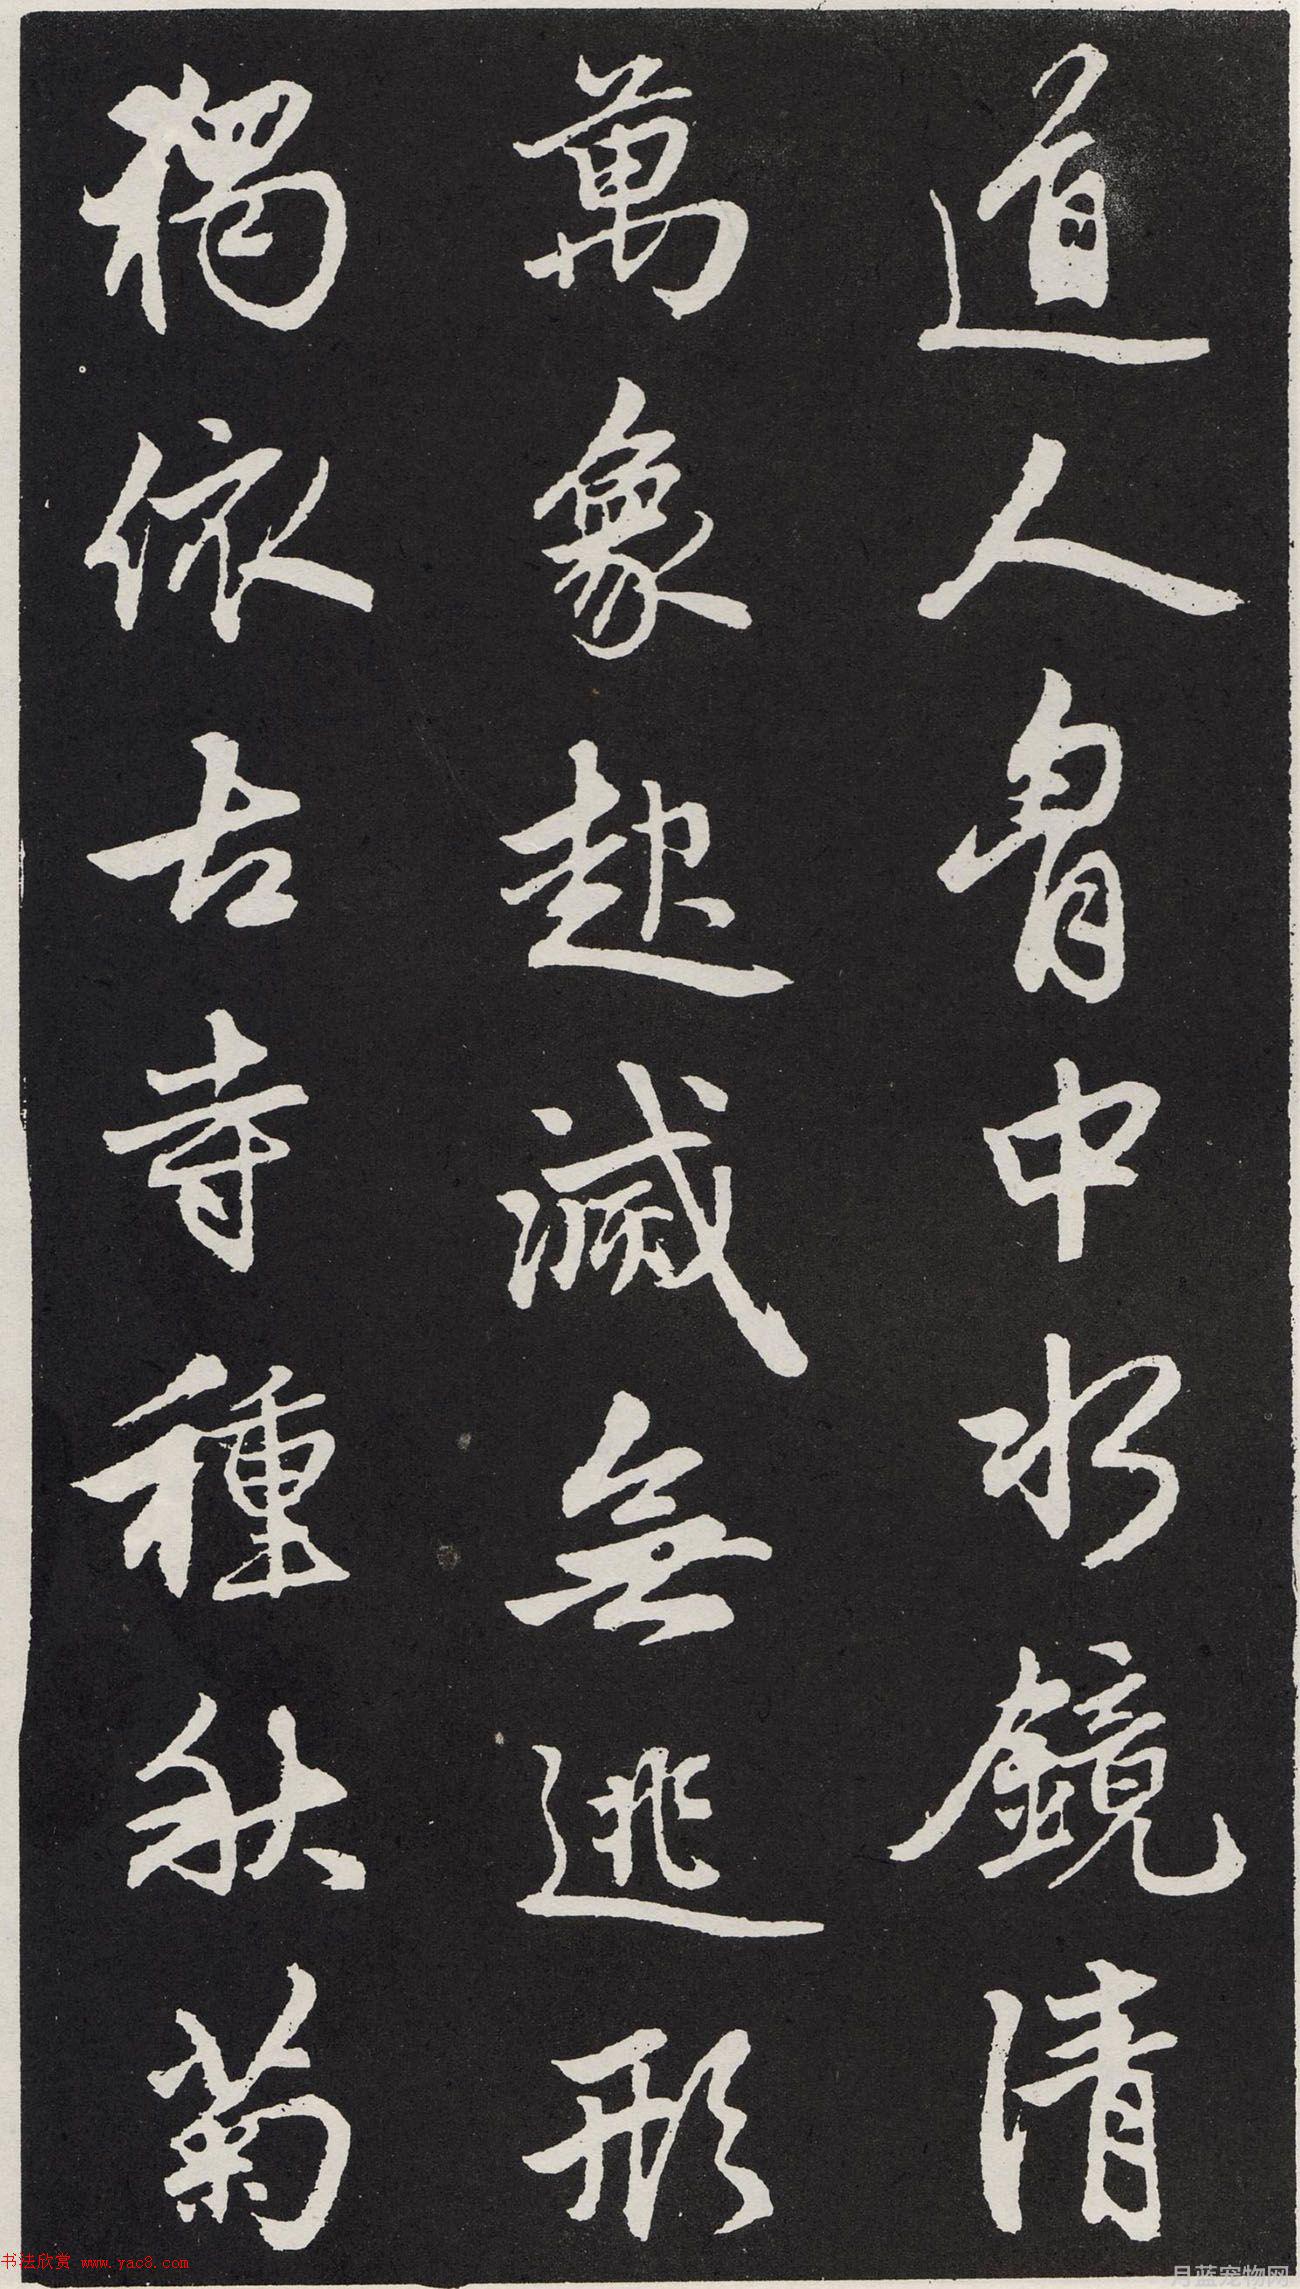 道人胷中水鏡清
萬象起滅無逃形
獨依古寺種秋菊
书法欣赏 www.yac8.com
月蓝宠物网